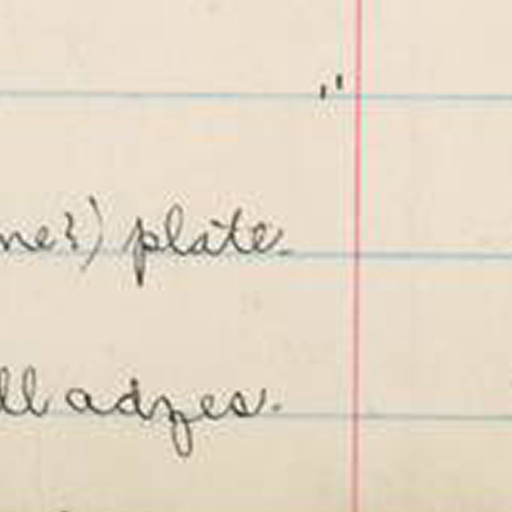 "
ne?) plate.
ll adzes.